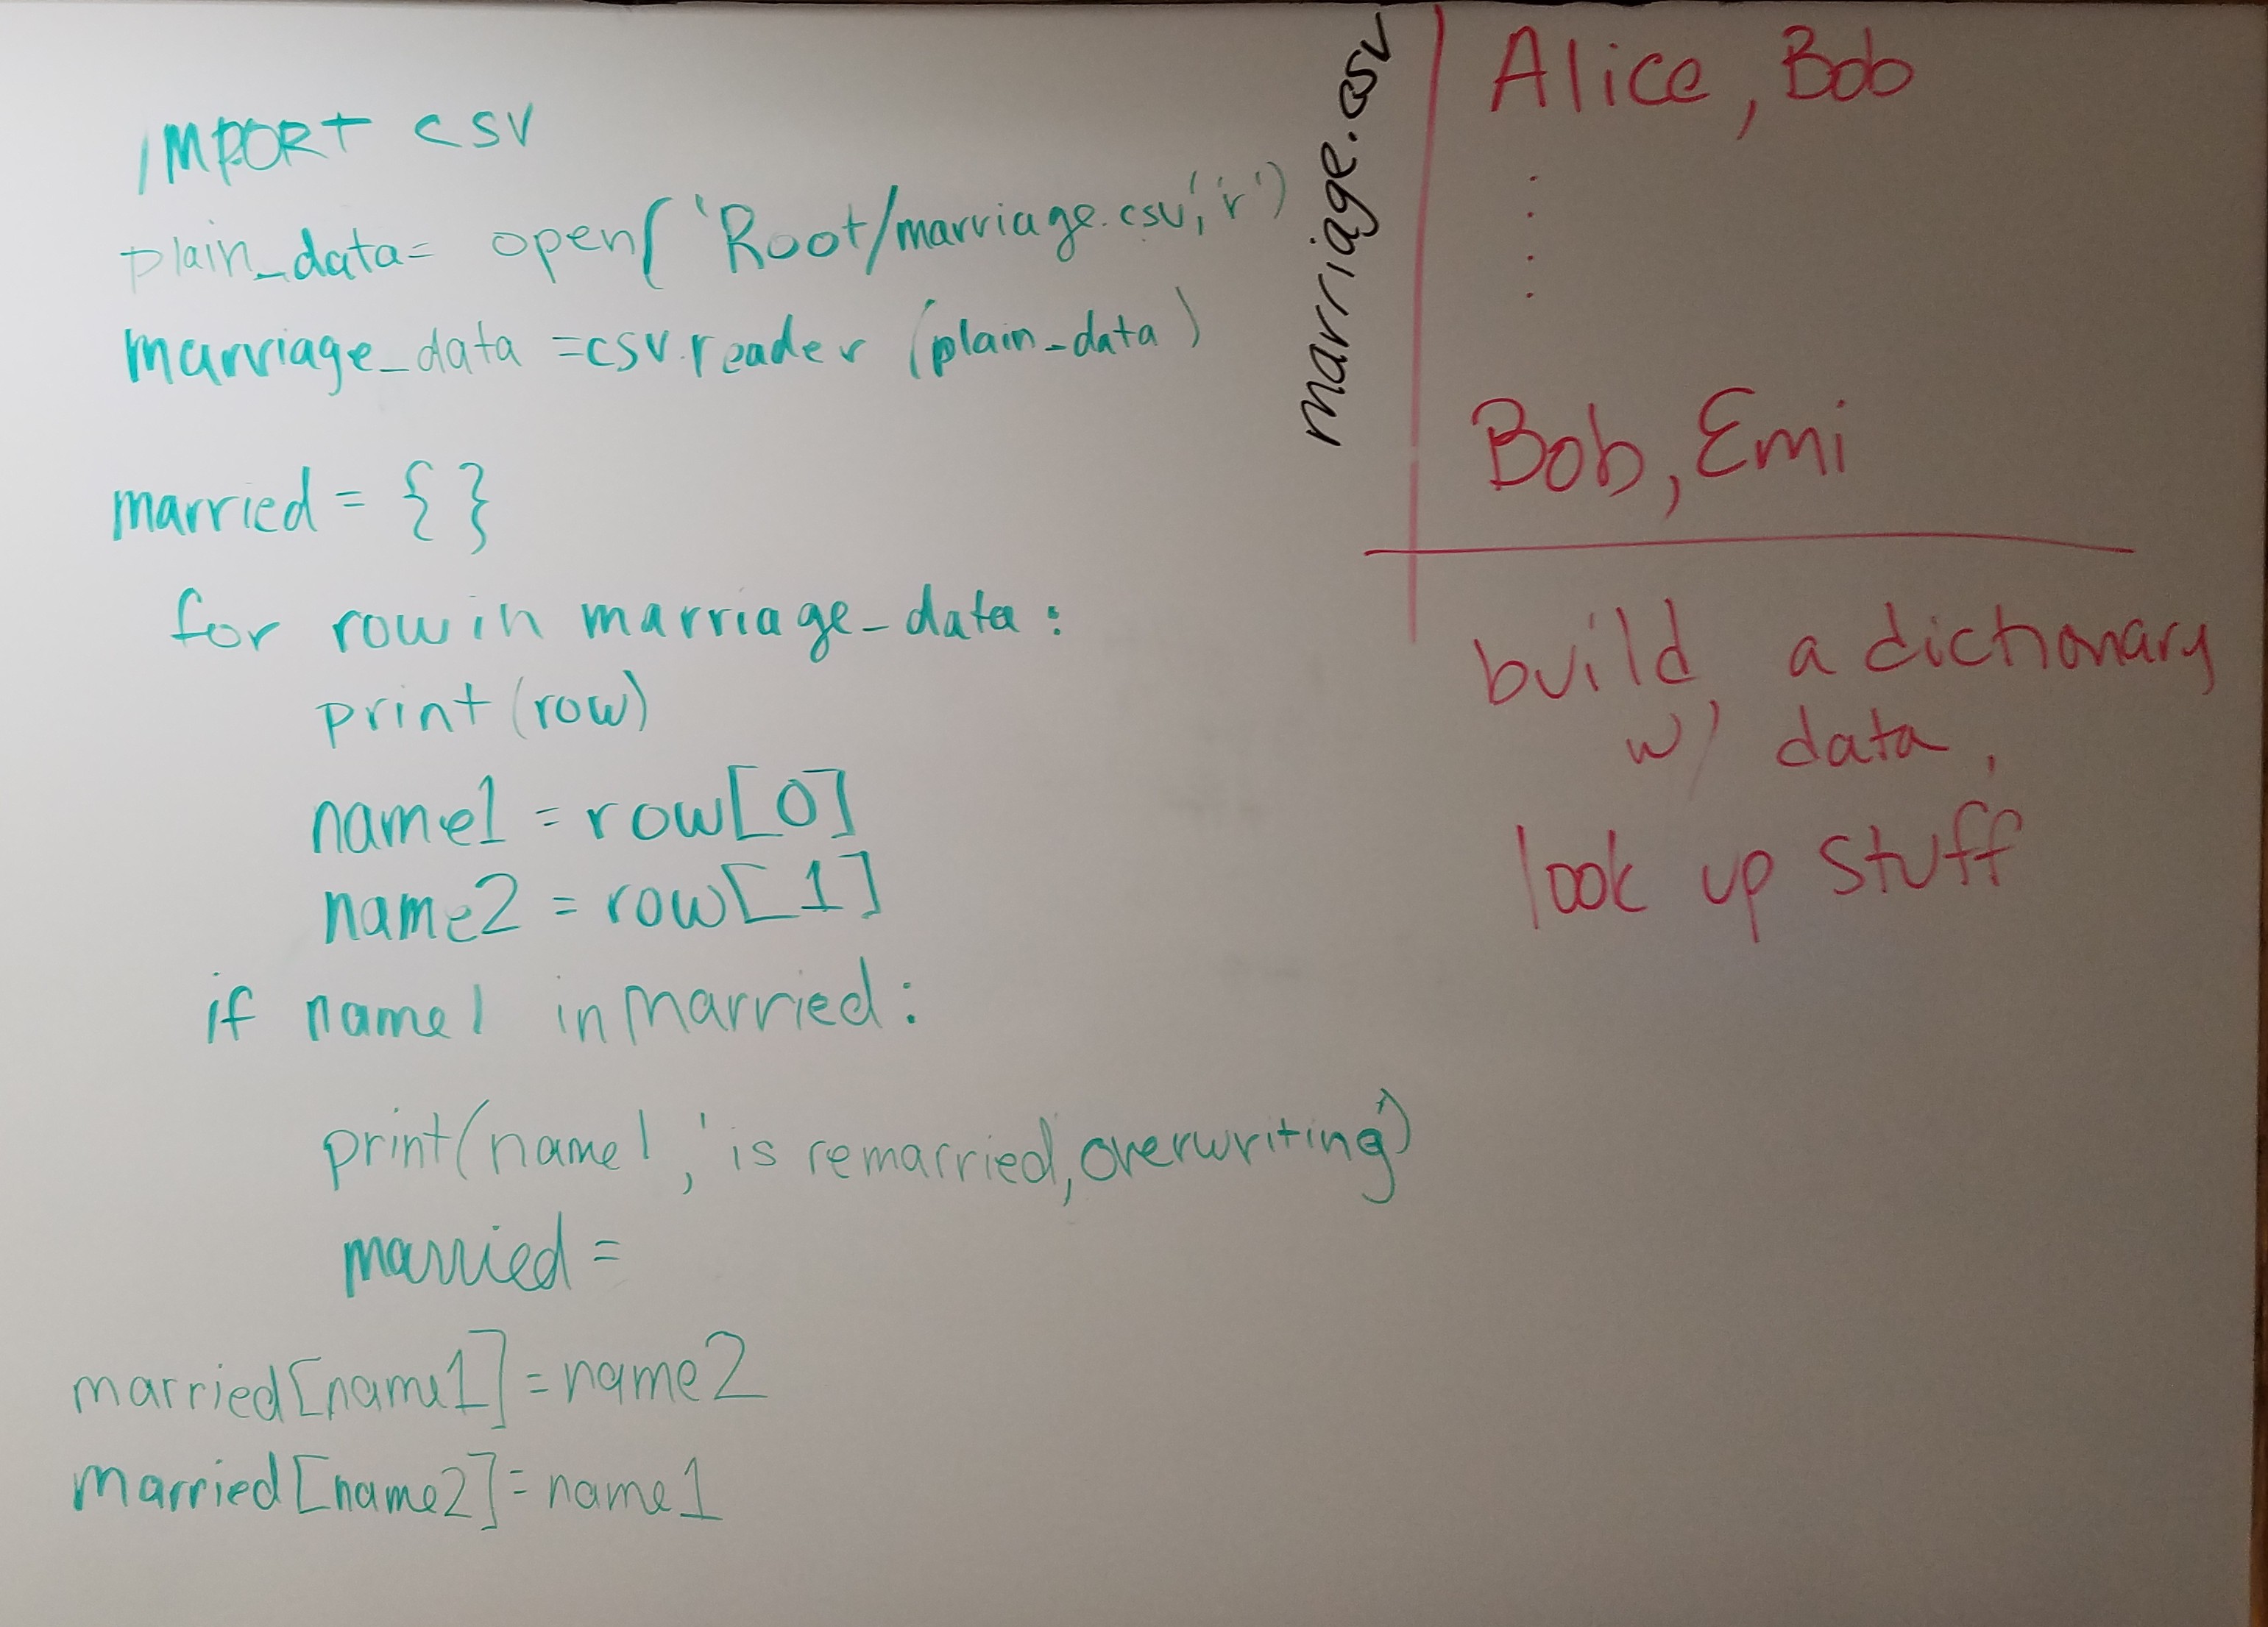 IMPORT csv
plain_data= open('Root/marriage.csv','r')
marriage_data =csv.reader (plain_data)
married = { }
for row in marriage_data :
print (row)
name1 = row[0]
name2 = row[1]
if name1 in married :
print(name1 , 'is remarried, overwriting')
married =
married[name1] = name2
married[name2] = name1
marriage.csv
Alice, Bob
....
Bob, Emi
build a dictionary
w/ data,
look up stuff